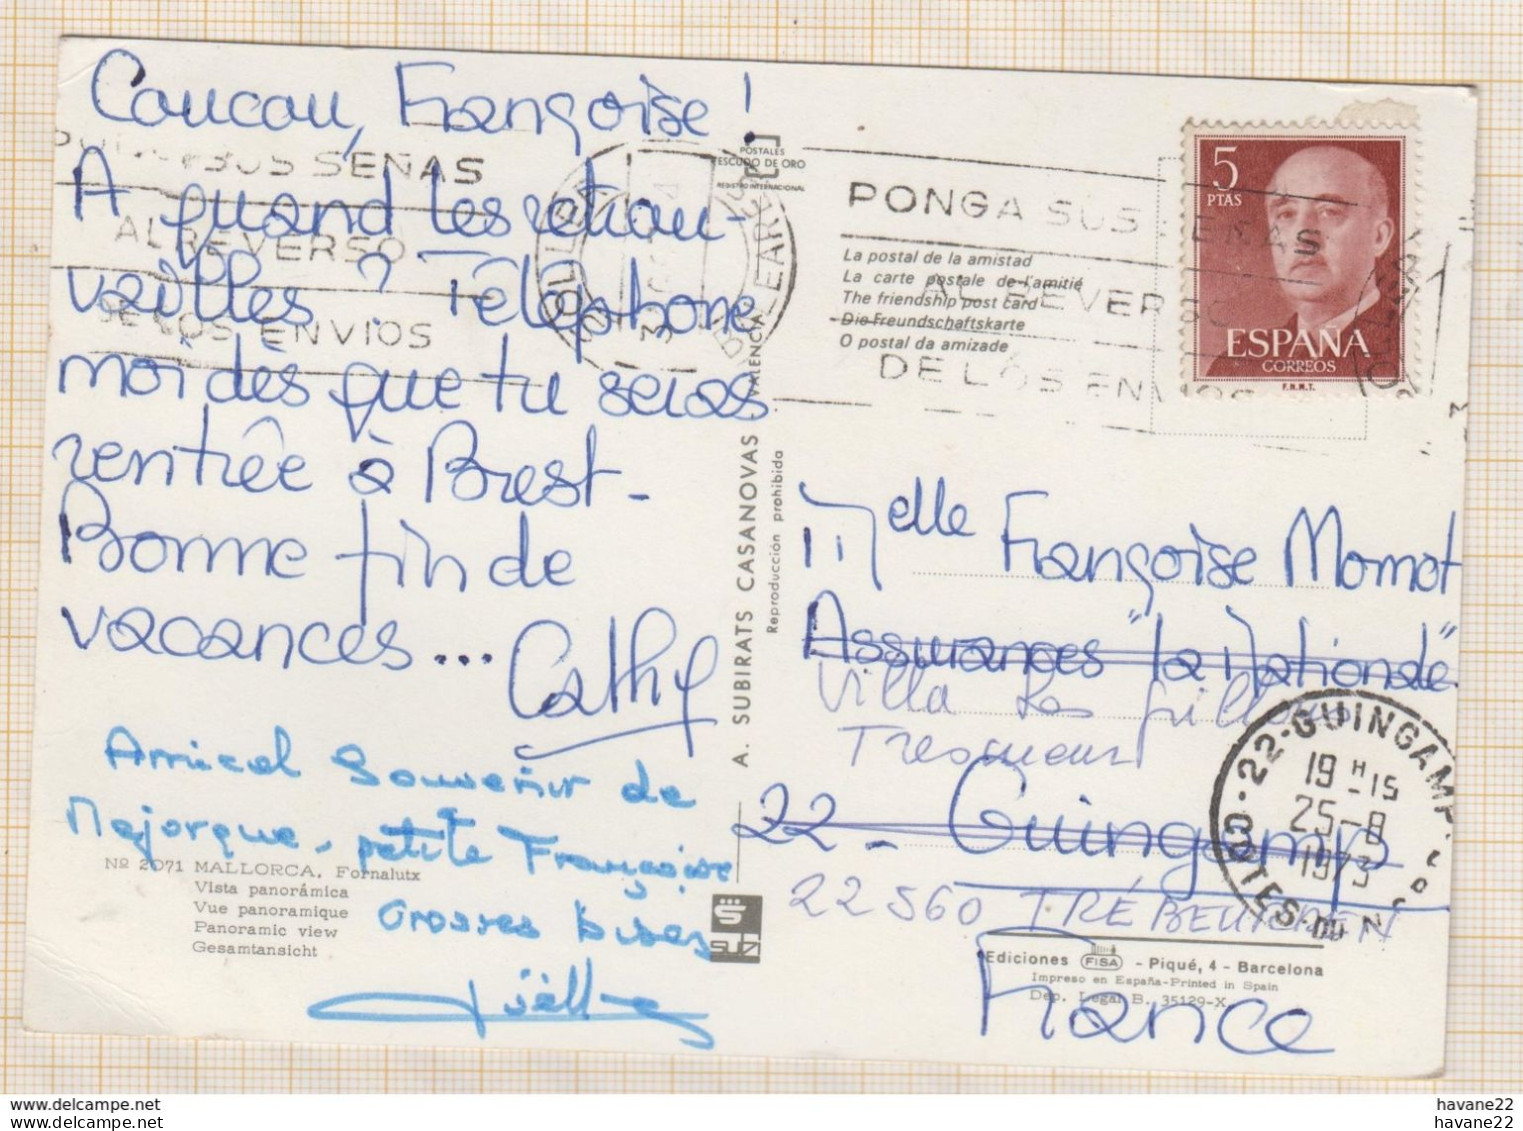 Coucou, Françoise !
A quand les retrou-
vailles ? Téléphone
moi dès que tu seras
rentrée à Brest -
Bonne fin de
vacances ... Cathy
Amical Souvenir de
Majorque, petite Françoise
Grosses bises
Joëlle
Nº 2071 MALLORCA. Fornalutx
Vista panorámica
Vue panoramique
Panoramic view
Gesamtansicht
SUS SEÑAS
AL REVERSO
DE LOS ENVIOS
POSTALES
ESCUDO DE ORO
REGISTRO INTERNACIONAL
A. SUBIRATS CASANOVAS - VALENCIA
Reproducción prohibida
SUZI
PONGA SUS SEÑAS
AL REVERSO
DE LOS ENVIOS
La postal de la amistad
La carte postale de l'amitié
The friendship post card
Die Freundschaftskarte
O postal da amizade
5
PTAS
ESPAÑA
CORREOS
F.N.M.T.
Melle Françoise Momot
Assurances "La Nationale"
Villa Les
22 - Guingamp
22560 TRÉBEURDEN
France
22-GUINGAMP
COTES-DU-N
19 H 15
25-8
1973
Ediciones FISA - Piqué, 4 - Barcelona
Impreso en España-Printed in Spain
Dep. Legal B. 35129-X
delcampe.net
havane22
havane22